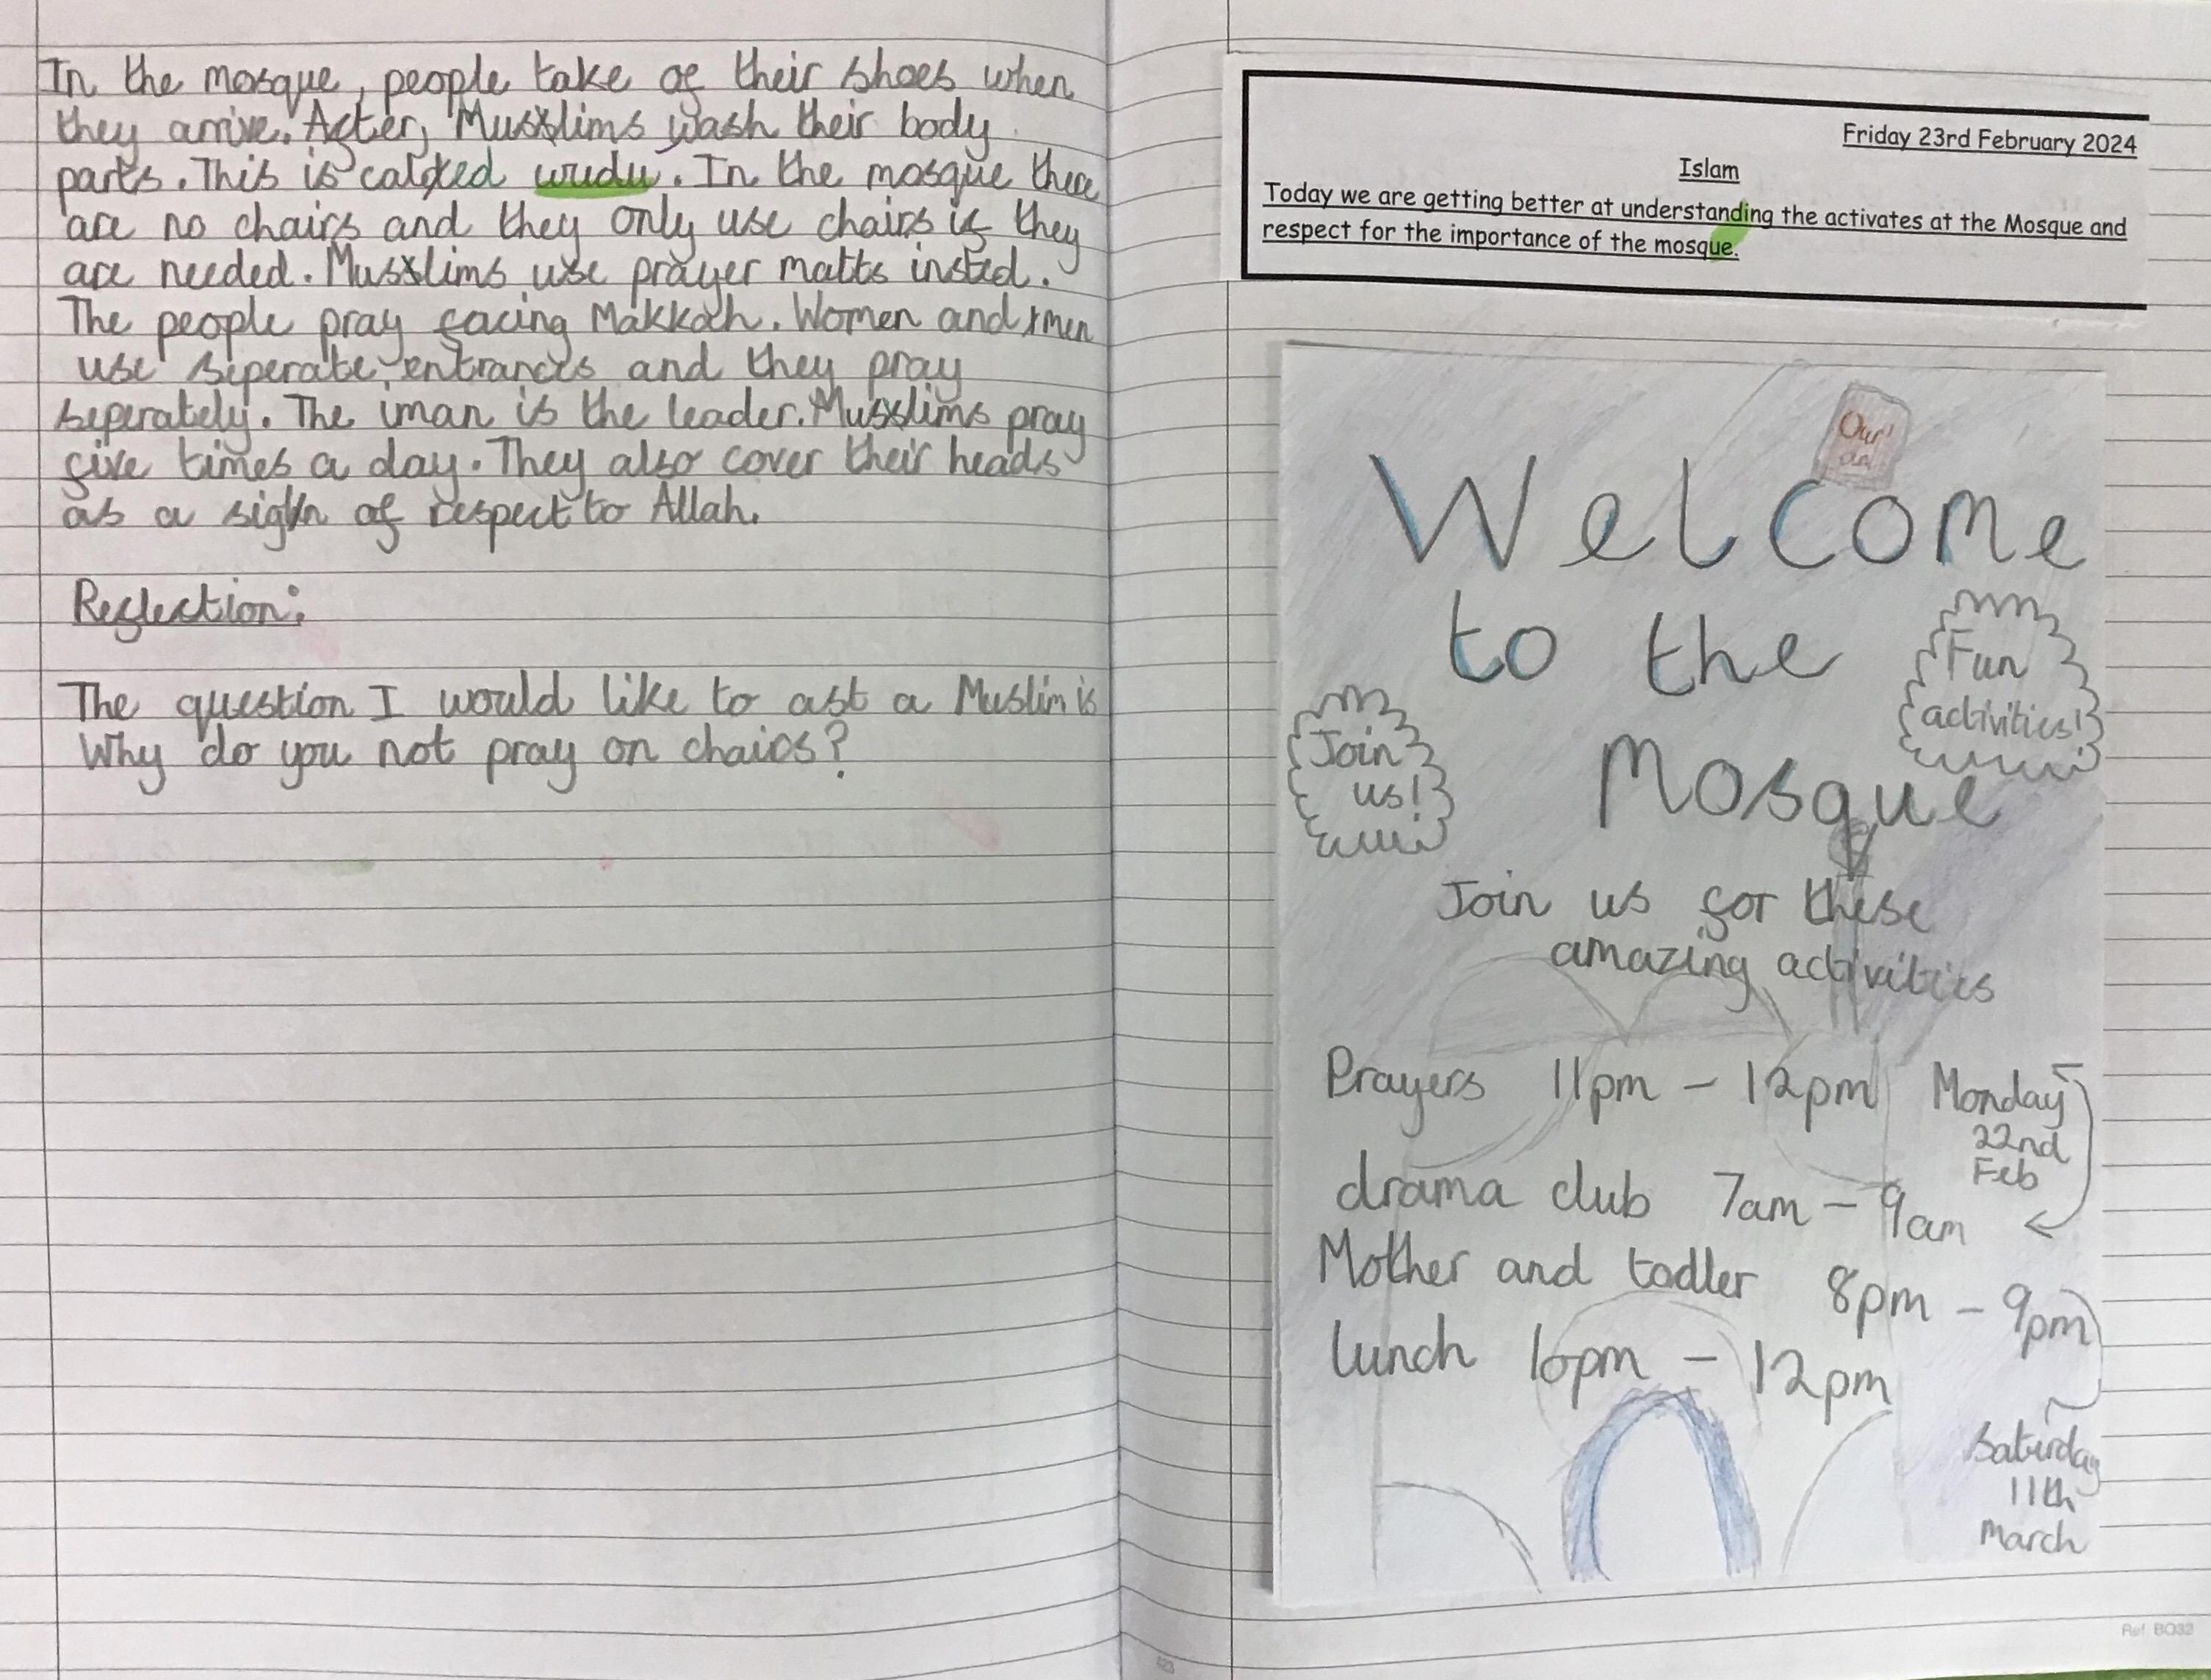 In the mosque, people take of their shoes when
they arrive. After, Musslims wash their body
parts. This is called wudu. In the mosque there
are no chairs and they only use chairs if they
are needed. Musslims use prayer matts insted.
The people pray facing Makkah. Women and men
use seperate entrances and they pray
seperately. The iman is the leader. Musslims pray
five times a day. They also cover their heads
as a sign of respect to Allah.
Reflection:
The question I would like to ast a Muslim is
Why do you not pray on chairs?
Friday 23rd February 2024
Islam
Today we are getting better at understanding the activates at the Mosque and
respect for the importance of the mosque.
Qur'
an
Welcome
to the
Mosque
Fun
activities!
Join
us!
Join us for these
amazing activities
Prayers 11pm - 12pm Monday
22nd
Feb
drama club 7am - 9am
Mother and todler 8pm - 9pm
lunch 10pm - 12pm
Saturday
11th
March
Ref: BO32